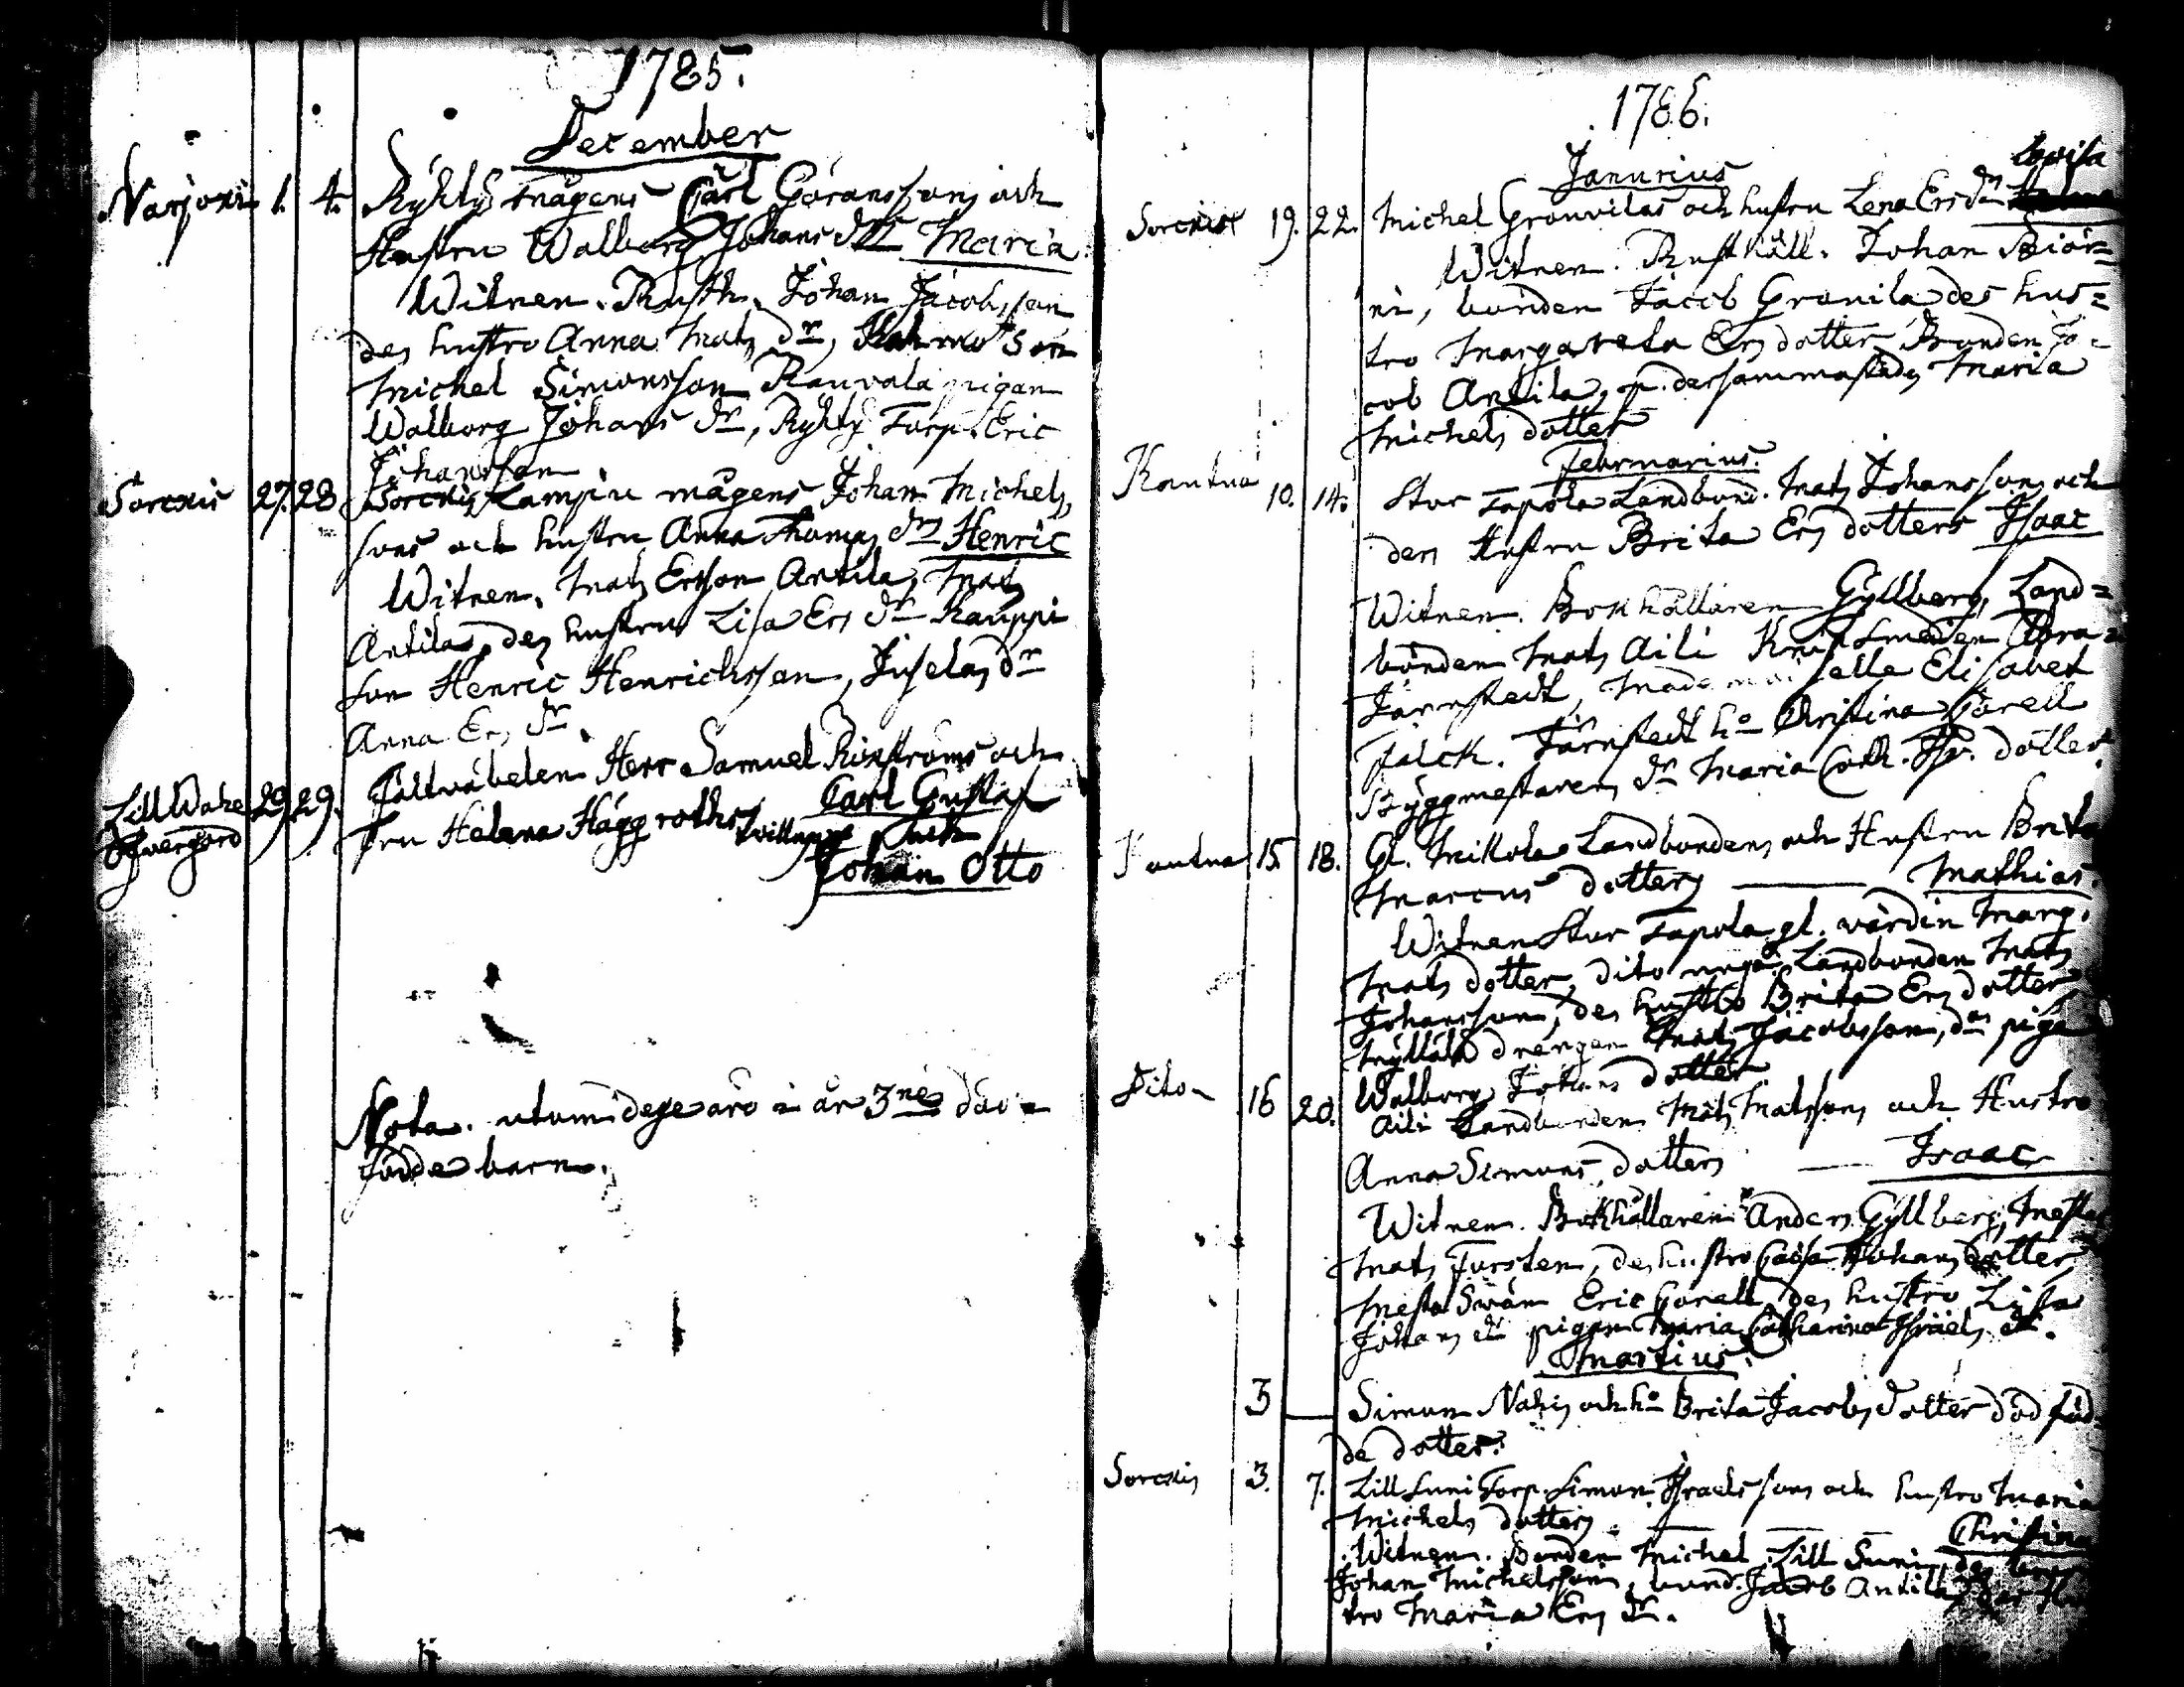 1785.
December
Varjoxis 1. 4. Ryktys mågens Carl Göranssons och
Hustru Walborg Johans dr Maria
Witnen. Rusth. Johan Jacobsson
des hustro Anna Mats dr, son
Michel Simonsson Rauvola pigan
Walborg Johans dr, Ryktys Torp. Eric
Johansson
Sorexis 27. 28 Sorexis Lampin mågens Johan Michels
sons och hustru Anna Thomas drs Henric
Witnen. Mats Ersson Antila, Mats
Antilas des hustru Lisa Ers dr Kauppi
son Henric Henrichsson, Juselas dr
Anna Ers dr.
Lill Wahe 29. 29. Fältväbelen Herr Samuel Rixströms och
Fru Helena Häggroths Carl Gustaf
tvillingar och
Johan Otto
Nota. utom dese äro i år 3ne död=
födde barn.
1786.
Januarius
Lovisa
Sorexis 19. 22. Michel Gronvilas och hustru Lena Ers drs
Witnen. Rusthåll. Johan Biör=
ni, bonden Jacob Gronila des hus=
tro Margareta Ersdotter Bonden Ja=
cob Antila, p. dersammastädes Maria
Michels dotter
Februarius.
Kautua 10. 14. Stor Tapola Landbond. Mats Johanssons och
des Hustru Brita Ers dotters Isaac
Witnen. Bokhållaren Gyllberg, Land=
bonden Mats Aili Knipsmeden Abra=
Järnstedt, Mademoiselle Elisabet
Falck. Järnstedt ho Christina Gorell
Byggmestarens dr Maria Cath. Isr. dotter.
Kautua 15 18. Gl. Mikola Landbondens och Hustru Brita
Marcus dotters — Mathias.
Witnen Stor Tapola gl. värdin Marg.
Mats dotter, dito unga Landbonden Mats
Johansson, des hustro Brita Ers dotter
Myllälä drengen Mats Jacobsson, das piga
Walborg Johans dotter
Dito 16 20. Aili Landbonden Mats Matssons och Hustro
Anna Simons dotters — Isaac
Witnen. Bokhållaren Anders Gyllberg, Mest.
Mats Fursten, des hustro Caisa Johans dotter,
Mesta Swän Eric Gorell, des hustro Lisa
Johans dr pigan Maria Catharina Israels dr.
Martius.
3 — Simon Nahis och ho Brita Jacobs dotter död föd=
de dotter.
Sorexis 3. 7. Lill Suni Torp. Simon Israelssons och hustro Maria
Michels dotters — Christina
Witnen. Bonden Michel Lill Suni,
Johan Michelsson, bond. Jacob Antila
tro Maria Ers dr.